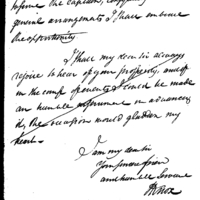 before the captain,
general arrangements I have embrace
the opportunity
I shall my dear Sir always
rejoice to hear of your prosperity, and if
in the course of events I could be made
an humble instrument in advancing
it, the occasion would gladden my
heart.
I am my dear Sir
Your sincere friend
and humble Servant
HKnox